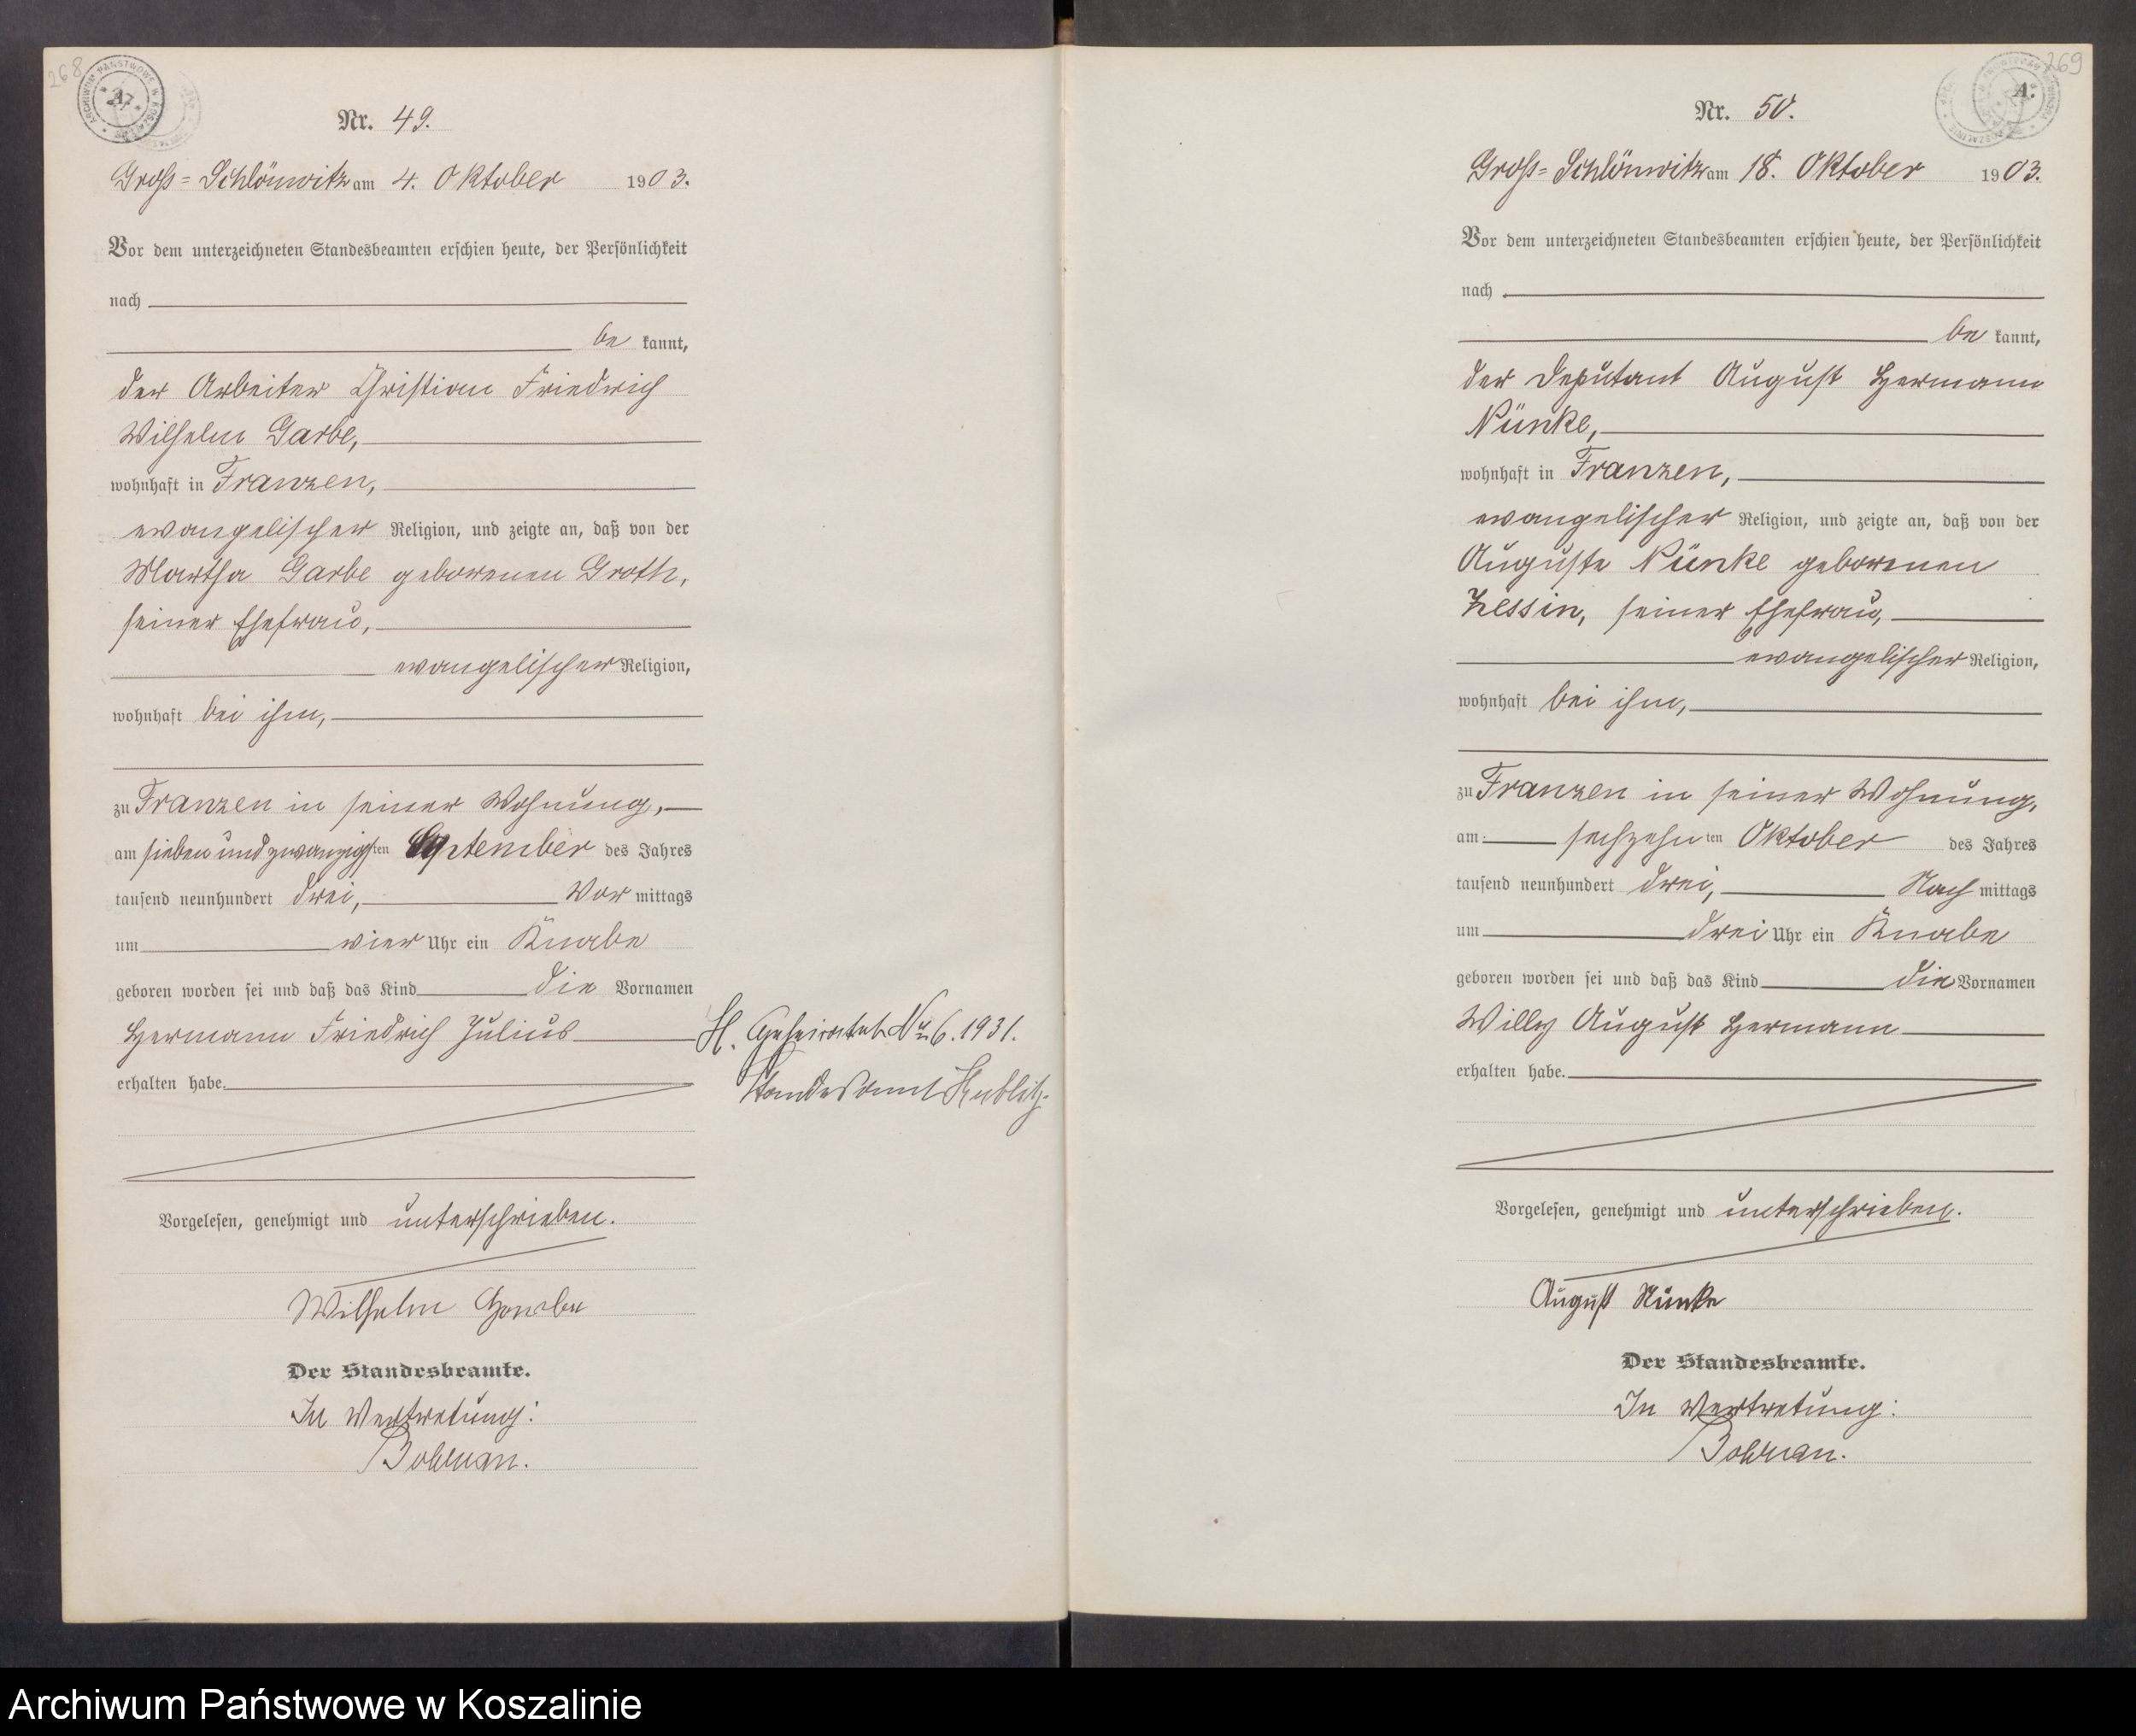 268
ARCHIWUM PAŃSTWOWE W KOSZALINIE
Nr. 49.
Groß-Schlönwitz am 4. Oktober 1903.
Vor dem unterzeichneten Standesbeamten erschien heute, der Persönlichkeit
nach
be kannt,
der Arbeiter Christian Friedrich
Wilhelm Garbe,
wohnhaft in Franzen,
evangelischer Religion, und zeigte an, daß von der
Martha Garbe geborenen Groth,
seiner Ehefrau,
evangelischer Religion,
wohnhaft bei ihm,
zu Franzen in seiner Wohnung,
am siebenundzwanzigsten September des Jahres
tausend neunhundert drei, Vor mittags
um vier Uhr ein Knabe
geboren worden sei und daß das Kind die Vornamen
Hermann Friedrich Julius
erhalten habe.
H. Geheiratet Nr 6. 1931.
Standesamt Kublitz.
Vorgelesen, genehmigt und unterschrieben.
Wilhelm Garbe
Der Standesbeamte.
In Vertretung:
269
A.
Nr. 50.
Groß-Schlönwitz am 18. Oktober 1903.
Vor dem unterzeichneten Standesbeamten erschien heute, der Persönlichkeit
nach
be kannt,
der Deputant August Hermann
Nünke,
wohnhaft in Franzen,
evangelischer Religion, und zeigte an, daß von der
Auguste Nünke geborenen
Zessin, seiner Ehefrau,
evangelischer Religion,
wohnhaft bei ihm,
zu Franzen in seiner Wohnung,
am sechzehnten Oktober des Jahres
tausend neunhundert drei, Nach mittags
um drei Uhr ein Knabe
geboren worden sei und daß das Kind die Vornamen
Willy August Hermann
erhalten habe.
Vorgelesen, genehmigt und unterschrieben.
August Nünke
Der Standesbeamte.
In Vertretung:
Archiwum Państwowe w Koszalinie